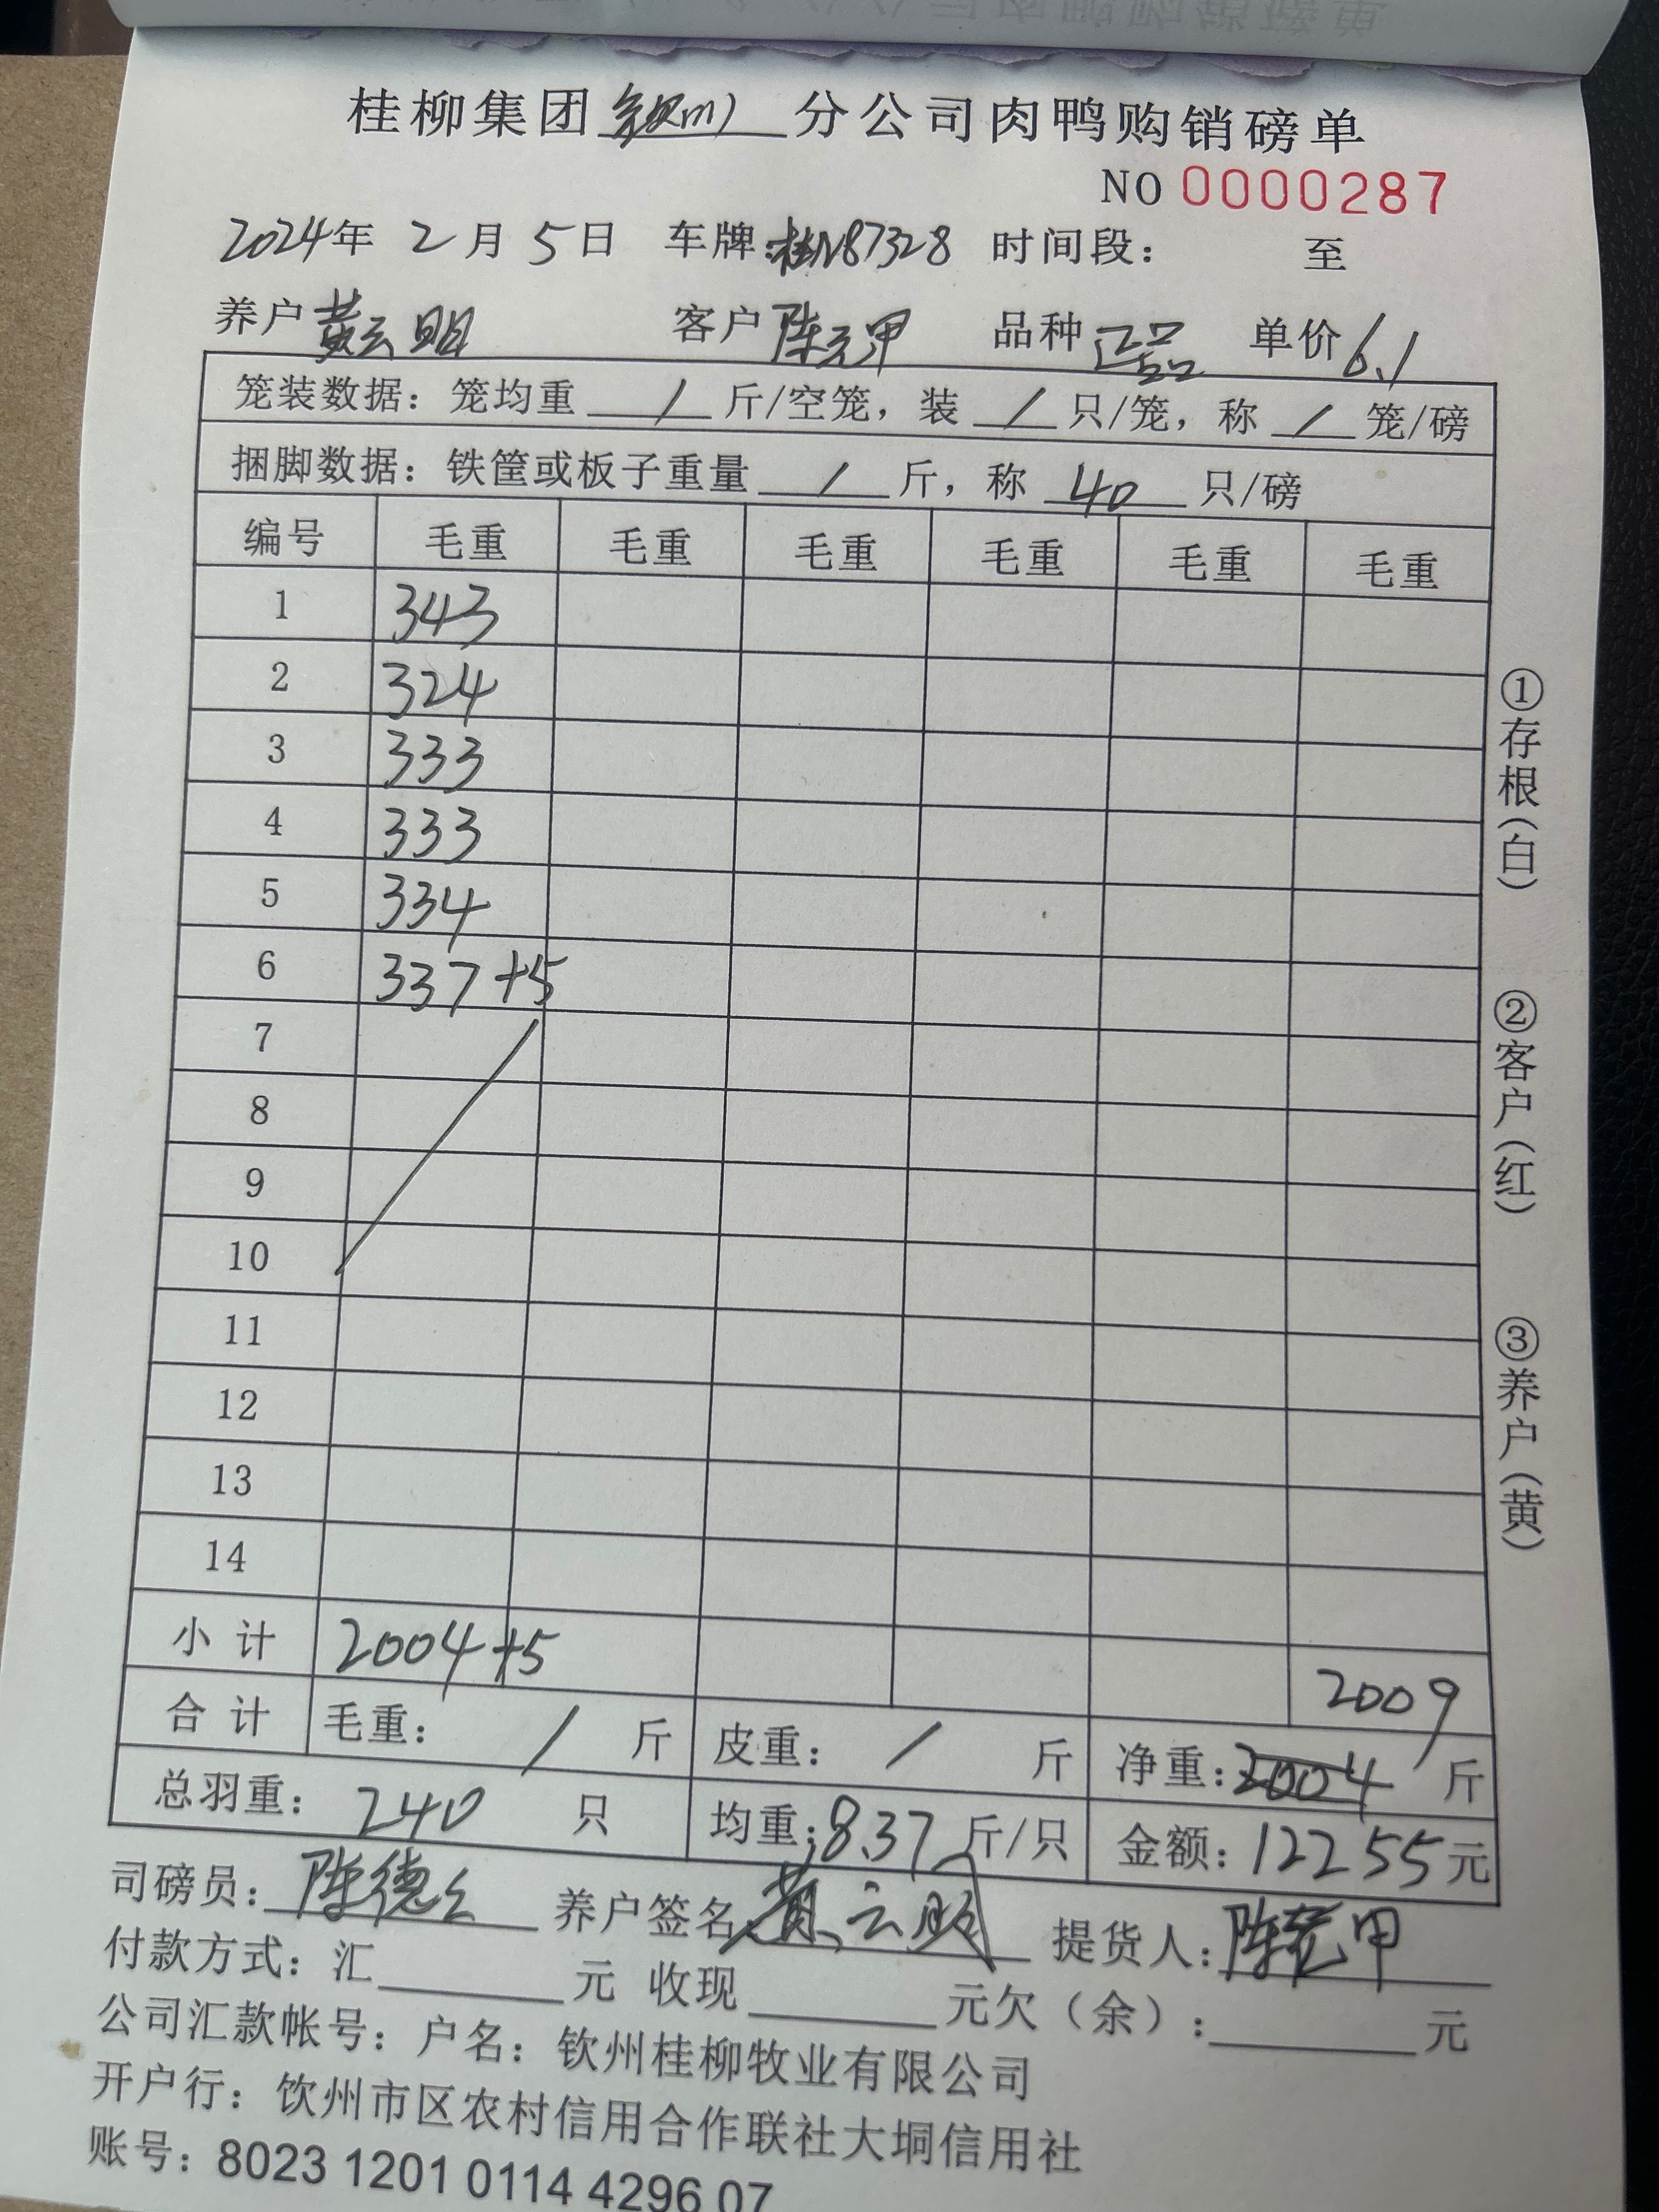 桂柳集团钦州分公司肉鸭购销磅单
NO 0000287
2024年 2月5日 车牌:桂N87328 时间段: 至
养户黄云明 客户陈元甲 品种正品 单价6.1
笼装数据:笼均重 / 斤/空笼,装 / 只/笼,称 / 笼/磅
捆脚数据:铁筐或板子重量 / 斤,称 40 只/磅
编号 毛重 毛重 毛重 毛重 毛重 毛重
1 343
2 324
3 333
4 333
5 334
6 337+5
7
8
9
10
11
12
13
14
小计 2004+5 2009
合计 毛重: / 斤 皮重: / 斤 净重:2004 斤
总羽重: 240 只 均重:8.37斤/只 金额:12255元
司磅员:陈德 养户签名:黄云明 提货人:陈元甲
付款方式:汇 元 收现 元欠(余): 元
公司汇款帐号:户名:钦州桂柳牧业有限公司
开户行:饮州市区农村信用合作联社大垌信用社
账号:8023 1201 0114 4296 07
①存根(白) ②客户(红) ③养户(黄)